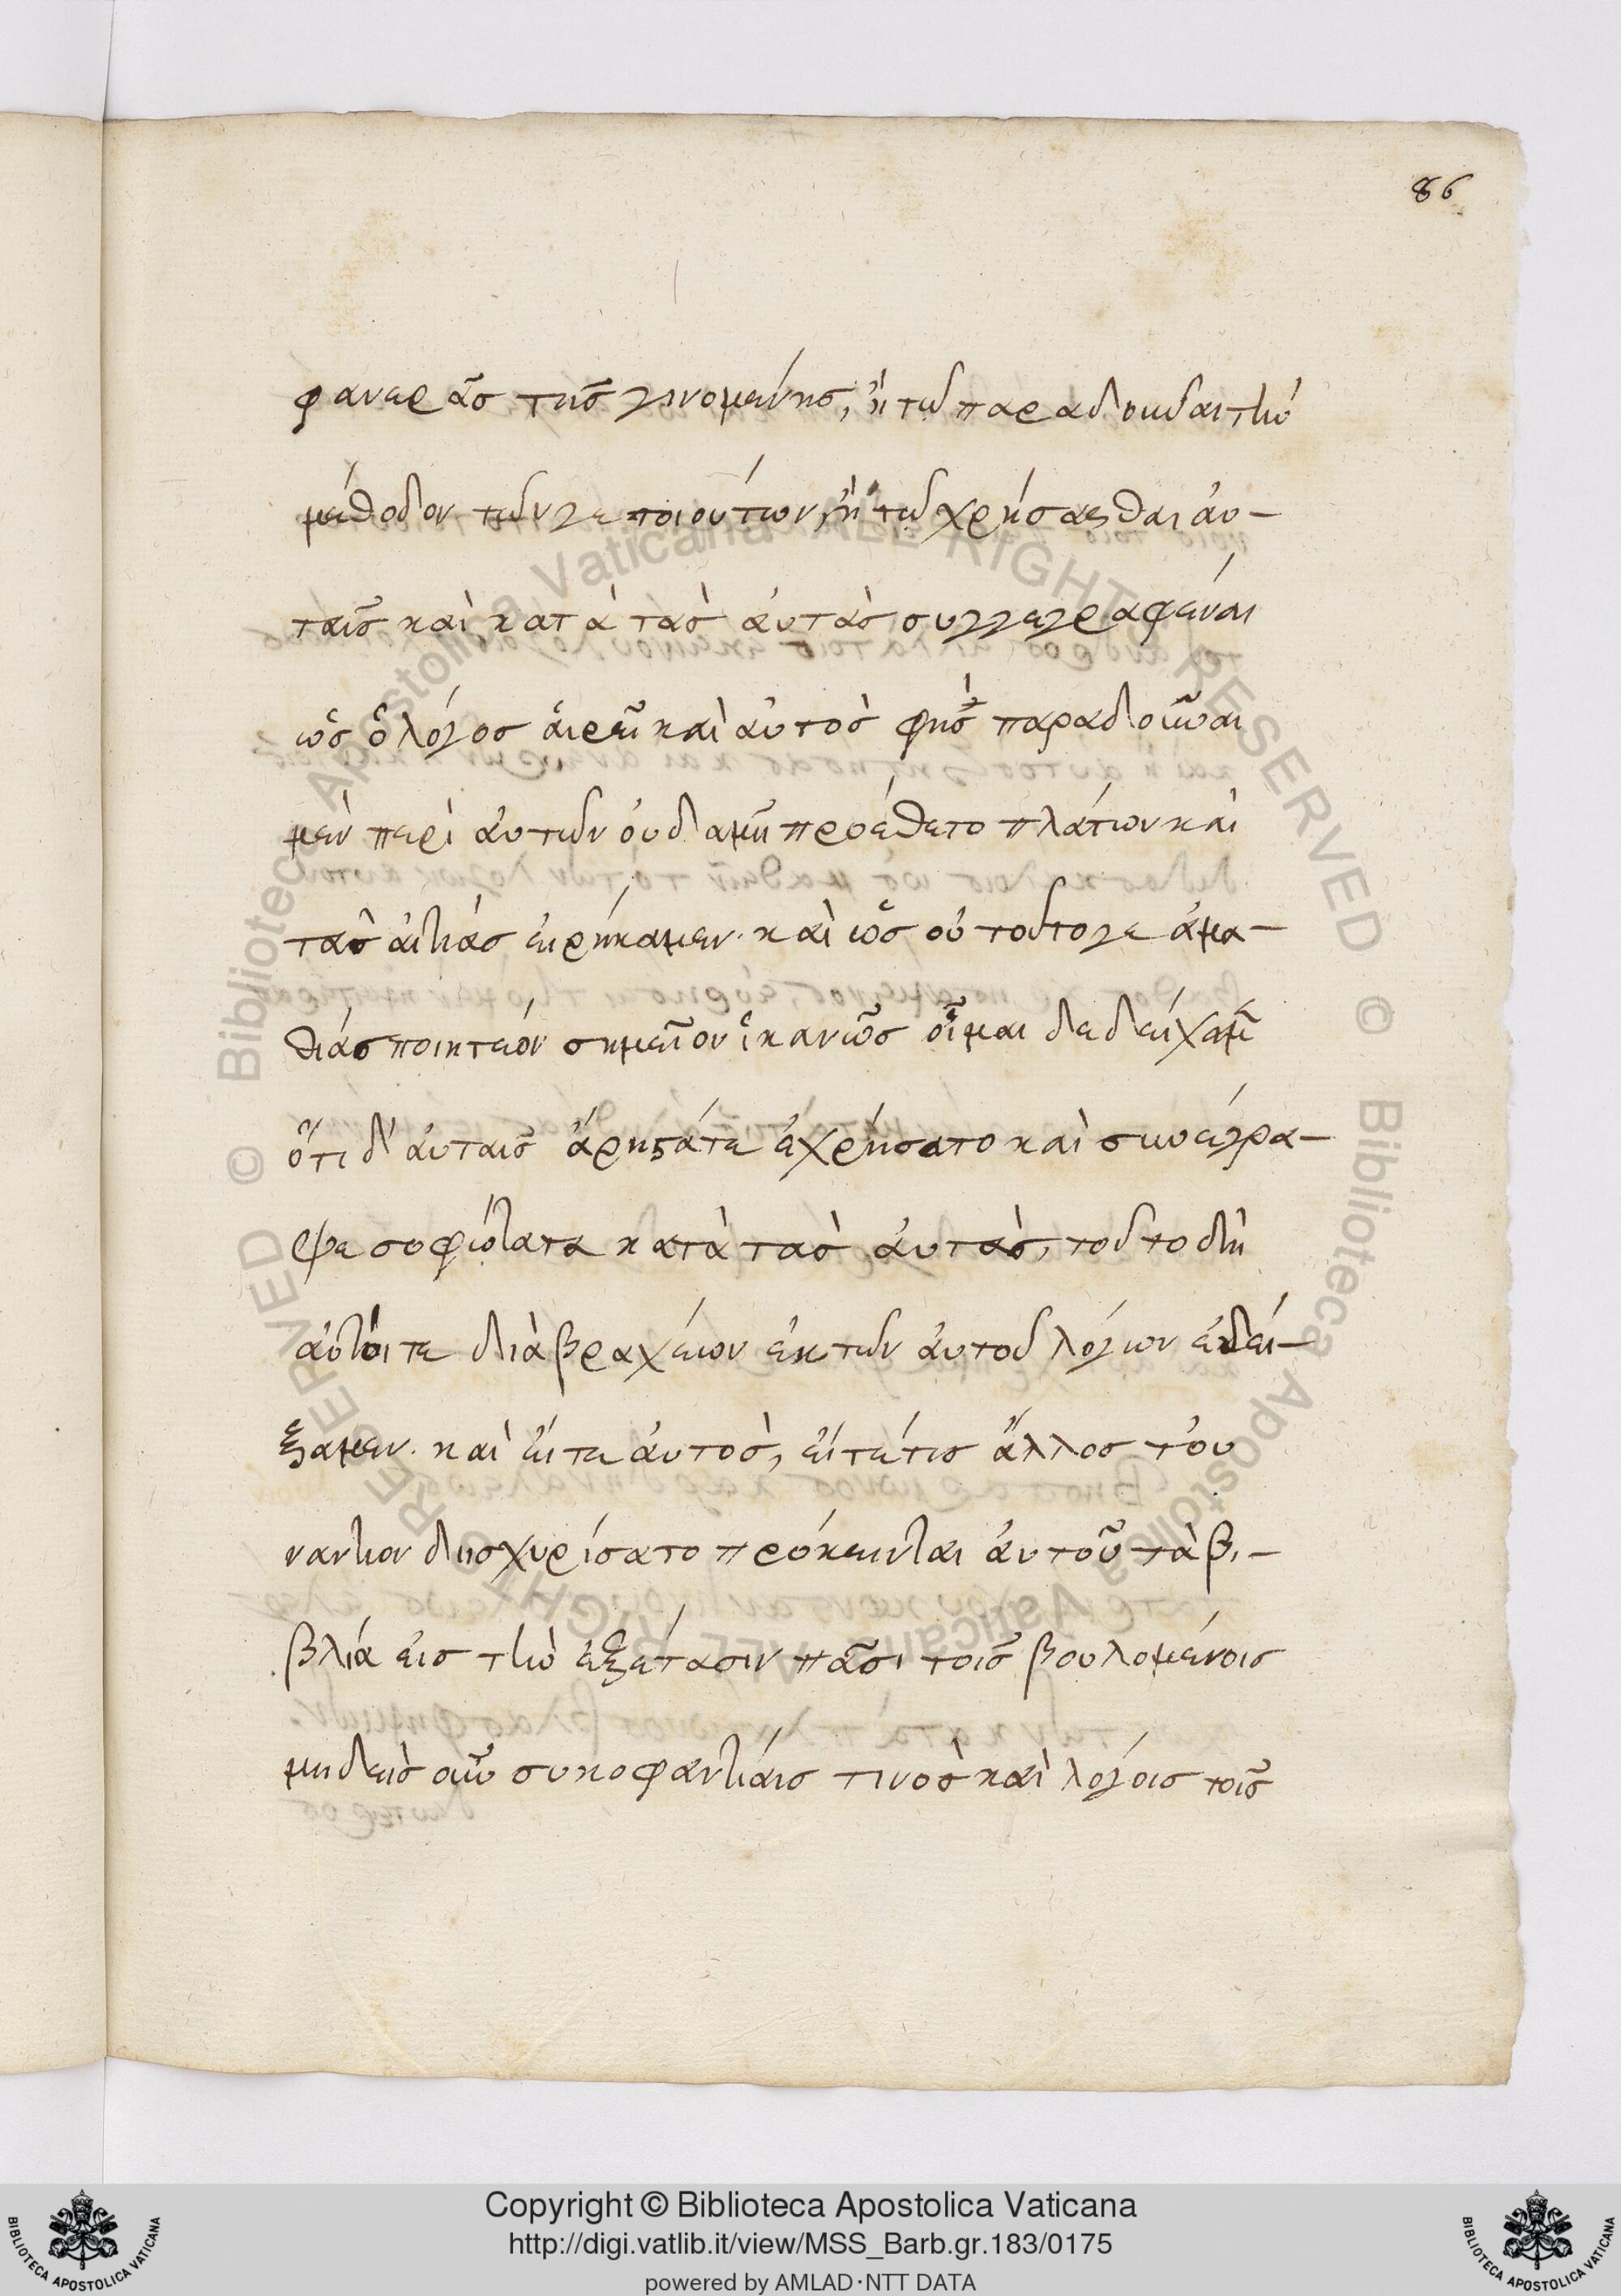 86
φανερᾶς τῆς γινομένης, ἢ τῶ παραδοῦναι τὴν
μέθοδον τῶν γε ποιούντων, ἢ τῶ χρήσασθαι αὐ-
ταῖς καὶ κατὰ τὰς αὐτὰς συγγεγραφέναι
ὡς ὁ λόγος αἱρεῖ καὶ αὐτὸς φησὶ παραδοῦναι
μὲν περὶ αὐτῶν οὐδαμῆ προέθετο πλάτων καὶ
τὰς αἰτίας εἰρήκαμεν. καὶ ὡς οὐ τοῦτο γε ἀμα-
θίας ποιητέον σημεῖον ἱκανῶς οἶμαι δεδείχαμεν
ὅτι δ' αὐταῖς ἄριστά τε ἐχρήσατο καὶ συνεγρα-
ψε σοφώτατα κατὰ τὰς αὐτὰς, τοῦτο δὴ
αὐτοί τε διὰ βραχέων ἐκ τῶν αὐτοῦ λόγων ἐδεί-
ξαμεν. καὶ εἴτε αὐτὸς, εἴτέ τις ἄλλος τοὐ
ναντίον διισχυρίσατο πρόκεινται αὐτοῦ τὰ βι-
βλία εἰς τὴν ἐξέτασιν πᾶσι τοῖς βουλομένοις
μηδεὶς οὖν συκοφαντίαις τινὸς καὶ λόγοις τοῖς
Copyright © Biblioteca Apostolica Vaticana
http://digi.vatlib.it/view/MSS_Barb.gr.183/0175
powered by AMLAD·NTT DATA
BIBLIOTECA APOSTOLICA VATICANA
BIBLIOTECA APOSTOLICA VATICANA
© Biblioteca Apostolica Vaticana ALL RIGHTS RESERVED
© Biblioteca Apostolica Vaticana ALL RIGHTS RESERVED